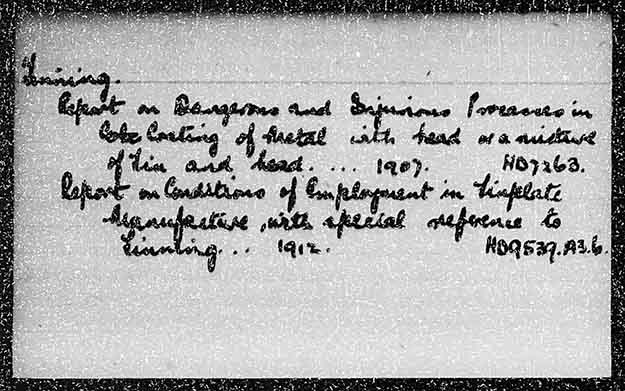 Tinning.
Report on Dangerous and Injurious Processes in
Coating of Metal with Lead or a mixture
of Tin and Lead. ... 1907. HD7263.
Report on Conditions of Employment in Tinplate
Manufacture, with special reference to
Tinning... 1912. HD9539.A3.6.